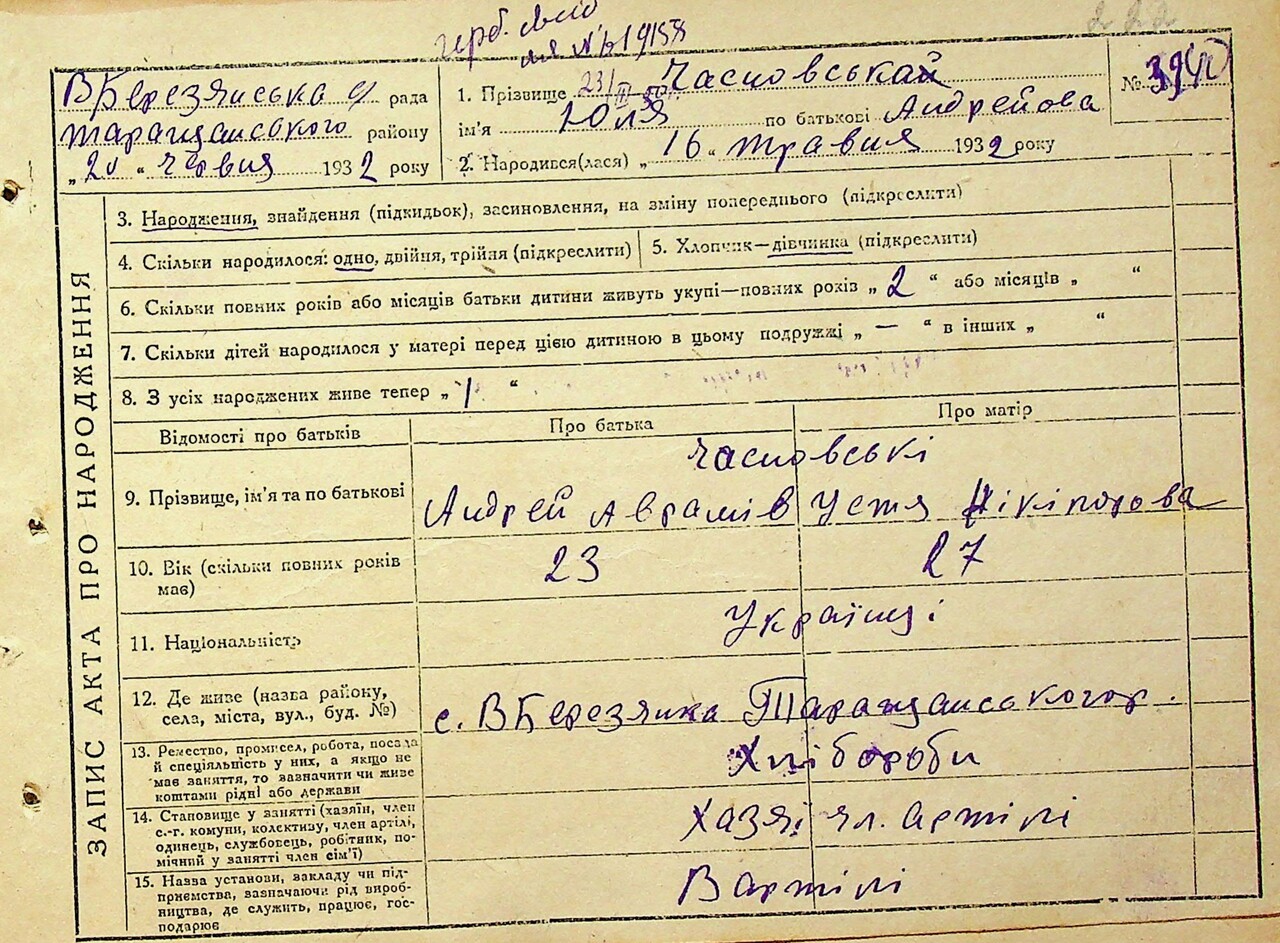 герб. свід
№ 19158
ВБерезянська рада
Таращанського району
„20“ червня 1932 року
1. Прізвище 23/ІІ-50 Часновська
ім'я Юля по батькові Андрейова
2. Народився(лася) „16“ травня 1932 року
№ 39
ЗАПИС АКТА ПРО НАРОДЖЕННЯ
3. Народження, знайдення (підкидьок), засиновлення, на зміну попереднього (підкреслити)
4. Скільки народилося: одно, двійня, трійня (підкреслити)
5. Хлопчик—дівчинка (підкреслити)
6. Скільки повних років або місяців батьки дитини живуть укупі—повних років „2“ або місяців „ “
7. Скільки дітей народилося у матері перед цією дитиною в цьому подружжі „—“ в інших „ “
8. З усіх народжених живе тепер „1“
Відомості про батьків
Про батька
Про матір
9. Прізвище, ім'я та по батькові
Часновські
Андрей Аврамів Устя Нікіпорова
10. Вік (скільки повних років
має)
23
27
11. Національність
Українці
12. Де живе (назва району,
села, міста, вул., буд. №)
с. ВБерезянка Таращанського р.
13. Ремество, промисел, робота, посада
й спеціяльність у них, а якщо не
має заняття, то зазначити чи живе
коштами рідні або держави
Хлібороби
14. Становище у занятті (хазяїн, член
с.-г. комуни, колективу, член артілі,
одинець, службовець, робітник, по-
мічний у занятті член сім'ї)
Хазяї чл. артілі
15. Назва установи, закладу чи під-
приємства, зазначаючи рід вироб-
ництва, де служить, працює, гос-
подарює
В артілі